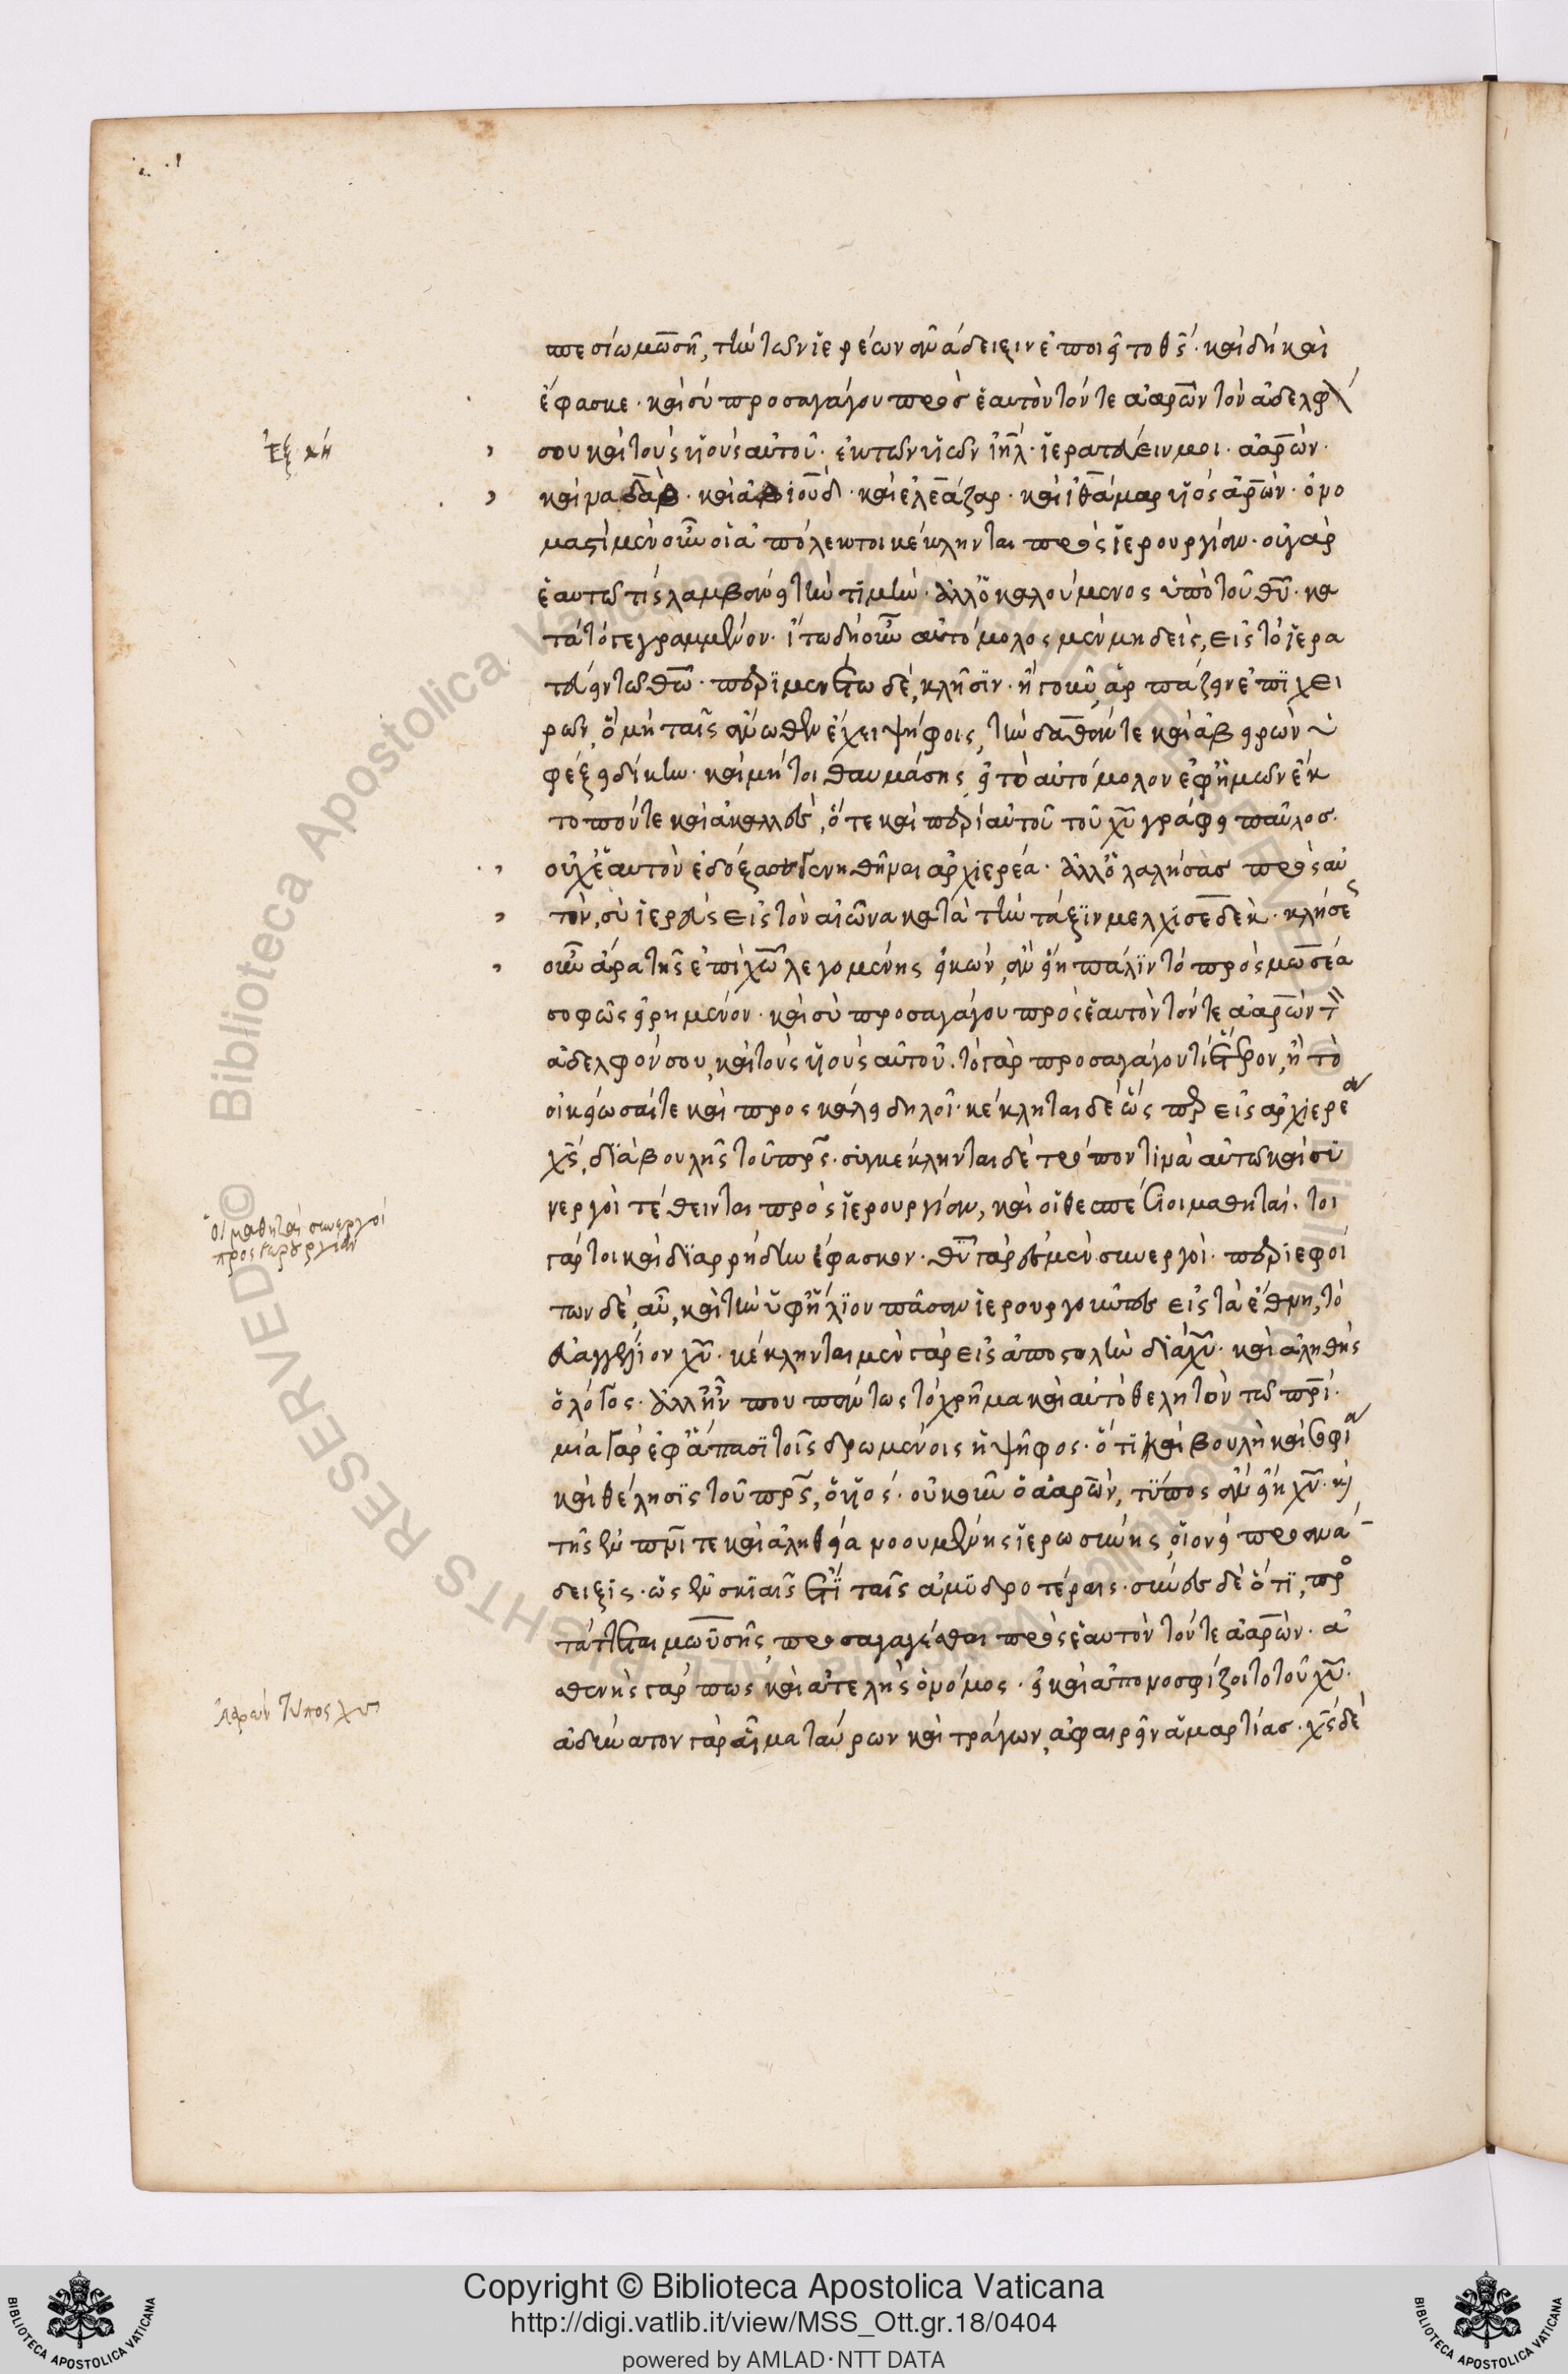 πεσίω μωσῆ, τὴν τῶν ἱερέων ἀνάδειξιν ἐποιεῖτο θς. καὶ δὴ καὶ
ἔφασκε. καὶ σὺ προσαγάγου πρὸς ἑαυτὸν τόν τε ἀαρὼν τὸν ἀδελφ
Ἐξ κή
σου καὶ τοὺς υἱοὺς αὐτοῦ. ἐκ τῶν υἱῶν ιηλ. ἱερατεύειν μοι. ἀαρών.
καὶ ναδάβ. καὶ ἀβιούδ. καὶ ἐλεάζαρ. καὶ ἰθάμαρ υἱὸς ἀρών. ὀνο
μαστὶ μὲν οὖν οἱ ἀπόλεκτοι κέκληνται πρὸς ἱερουργίαν. οὐ γὰρ
ἑαυτῶ τίς λαμβάνει τὴν τιμήν. ἀλλ' ὁ καλούμενος ὑπὸ τοῦ θυ. κα
τὰ τὸ γεγραμμένον. ἴτω δὴ οὖν αὐτόμολος μὲν μηδεὶς, εἰς τὸ ἱερα
τεύειν τῶ θω. περιμενέτω δὲ, κλῆσιν. ἢ γοῦν ἁρπάζειν ἐπιχει
ρῶν, ὃ μὴ ταῖς ἄνωθεν ἔχει ψήφοις, τὴν δαθάν τε καὶ ἀβειρὼν ὑ
φέξει δίκην. καὶ μή τοι θαυμάσης εἰ τὸ αὐτόμολον ἐφ' ἡμῶν ἔκ
τοπόν τε καὶ ἀκαλλὲς, ὅτε καὶ περὶ αὐτοῦ τοῦ χυ γράφει παῦλος.
οὐχ ἑαυτὸν ἐδόξασε γενηθῆναι ἀρχιερέα. ἀλλ' ὁ λαλήσας πρὸς αὐ
τὸν, σὺ ἱερεὺς εἰς τὸν αἰῶνα κατὰ τὴν τάξιν μελχισεδέκ. κλήσεως
οὖν ἄρα τῆς ἐπὶ χω λεγομένης εἰκὼν, ἂν εἴη πάλιν τὸ πρὸς μωσέα
σοφῶς εἰρημένον. καὶ σὺ προσαγάγου πρὸς ἑαυτὸν τόν τε ἀαρὼν τὸν
ἀδελφόν σου, καὶ τοὺς υἱοὺς αὐτοῦ. τὸ γὰρ προσαγάγου τί ἕτερον, ἢ τὸ
οἰκείωσαί τε καὶ προσκάλει δηλοῖ. κέκληται δὲ ὡς περ εἰς ἀρχιερέα
χς, διὰ βουλῆς τοῦ πρς. συγκέκληνται δὲ τρόπον τινὰ αὐτῶ καὶ συ
Οἱ μαθηταὶ συνεργοὶ
πρὸς ἱερουργίαν
νεργοὶ τέθεινται πρὸς ἱερουργίαν, καὶ οἱ θεσπέσιοι μαθηταί. τοι
γάρτοι καὶ διαρρήδην ἔφασκον. θυ γάρ ἐσμεν συνεργοὶ. περιεφοί
των δὲ, αὖ, καὶ τὴν ὑφ' ἥλιον πᾶσαν ἱερουργοῦντες εἰς τὰ ἔθνη, τὸ
εὐαγγέλιον χυ. κέκληνται μὲν γὰρ εἰς ἀποστολὴν διὰ χυ. καὶ ἀληθὴς
ὁ λόγος. ἀλλ' ἦν που πάντως τὸ χρῆμα καὶ αὐτὸ θελητὸν τῶ πρι.
μία γὰρ ἐφ' ἅπασι τοῖς δρωμένοις ἡ ψῆφος. ὅτι καὶ βουλὴ καὶ σοφία
καὶ θέλησις τοῦ πρς, ὁ υἱός. οὐκοῦν ὁ ἀαρὼν, τύπος ἂν εἴη χυ. καὶ
τῆς ἐν πνι τε καὶ ἀληθεία νοουμένης ἱερωσύνης, οἱονεὶ προανά
δειξις. ὡς ἐν σκιαῖς ἔτι ταῖς ἀμυδροτέραις. συνὲς δὲ ὅτι, προσ
τάττεται μωϋσῆς, προσαγαγέσθαι πρὸς ἑαυτὸν τόν τε ἀαρών. ἀ
Ἀαρὼν τύπος χυ
σθενὴς γάρ πως καὶ ἀτελὴς ὁ νόμος. εἰ καὶ ἀπονοσφίζοιτο τοῦ χυ.
ἀδύνατον γὰρ αἷμα ταύρων καὶ τράγων, ἀφαιρεῖν ἁμαρτίας. χς δὲ
© Biblioteca Apostolica Vaticana
ALL RIGHTS RESERVED
Copyright © Biblioteca Apostolica Vaticana
http://digi.vatlib.it/view/MSS_Ott.gr.18/0404
powered by AMLAD·NTT DATA
BIBLIOTECA APOSTOLICA VATICANA
BIBLIOTECA APOSTOLICA VATICANA